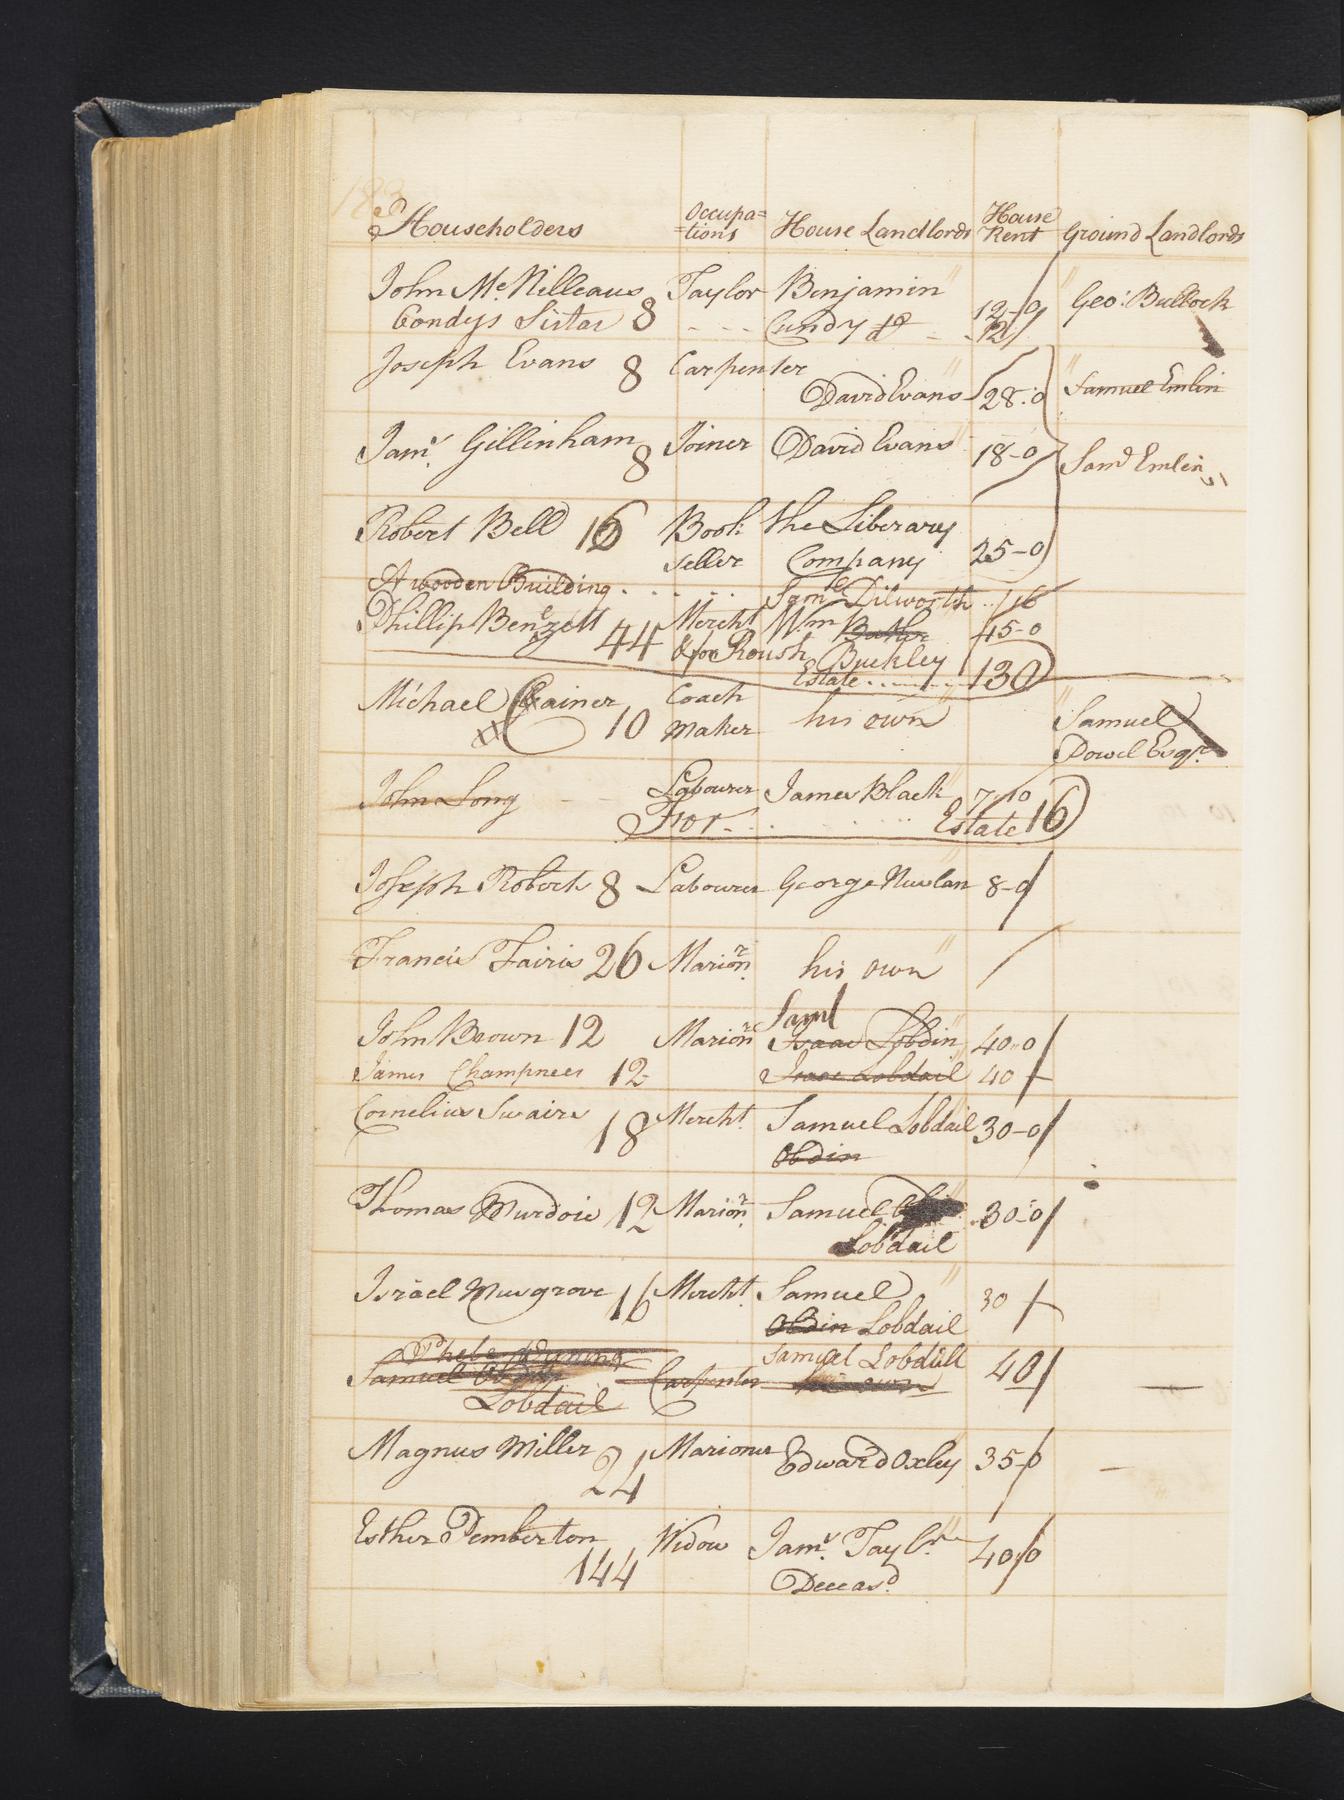 Householders Occupa= =tions House Landlords House Rent Ground Landlords
John Mc Nilleaus Taylor Benjamin 12-0 Geo: Bullock
Condys Sister 8 Cundy do 12
Joseph Evans 8 Carpenter David Evans 28:0 Samuel Emlin
Jams Gillinham 8 Joiner David Evans 18-0 Saml Emlin
Robert Bell 16 Book the Liberary
seller Company 25-0
A wooden Building Saml Dilworth 16
Phillip Benzett 44 Mercht Wm 45-0
& for Roush Buckley
Estate 130
Michael Cainer 10 Coach his own Samuel
Maker Powel Esqr.
John Long Labourer James Black 7:10
For Estate 16
Joseph Roberts 8 Labourer George Nuslan 8-0
Francis Fairis 26 Marionr his own
Saml
John Brown 12 Marionr Isaac Lobdin 40-0
James Champnees 12 Isaac Lobdail 40
Cornelius Swaire 18 Mercht. Samuel Lobdail 30-0
Obdin
Thomas Murdoie 12 Marionr Samuel 30-0
Lobdail
Israel Musgrove 16 Mercht. Samuel 30
Obdin Lobdail
Phebe Samuel Lobdill 40
Samuel Carpenter his own
Lobdail
Magnus Miller 24 Marioner Edward Oxley 35-0
Esther Pemberton 144 Widow Jams. Taylr. 40/0
Deceasd.